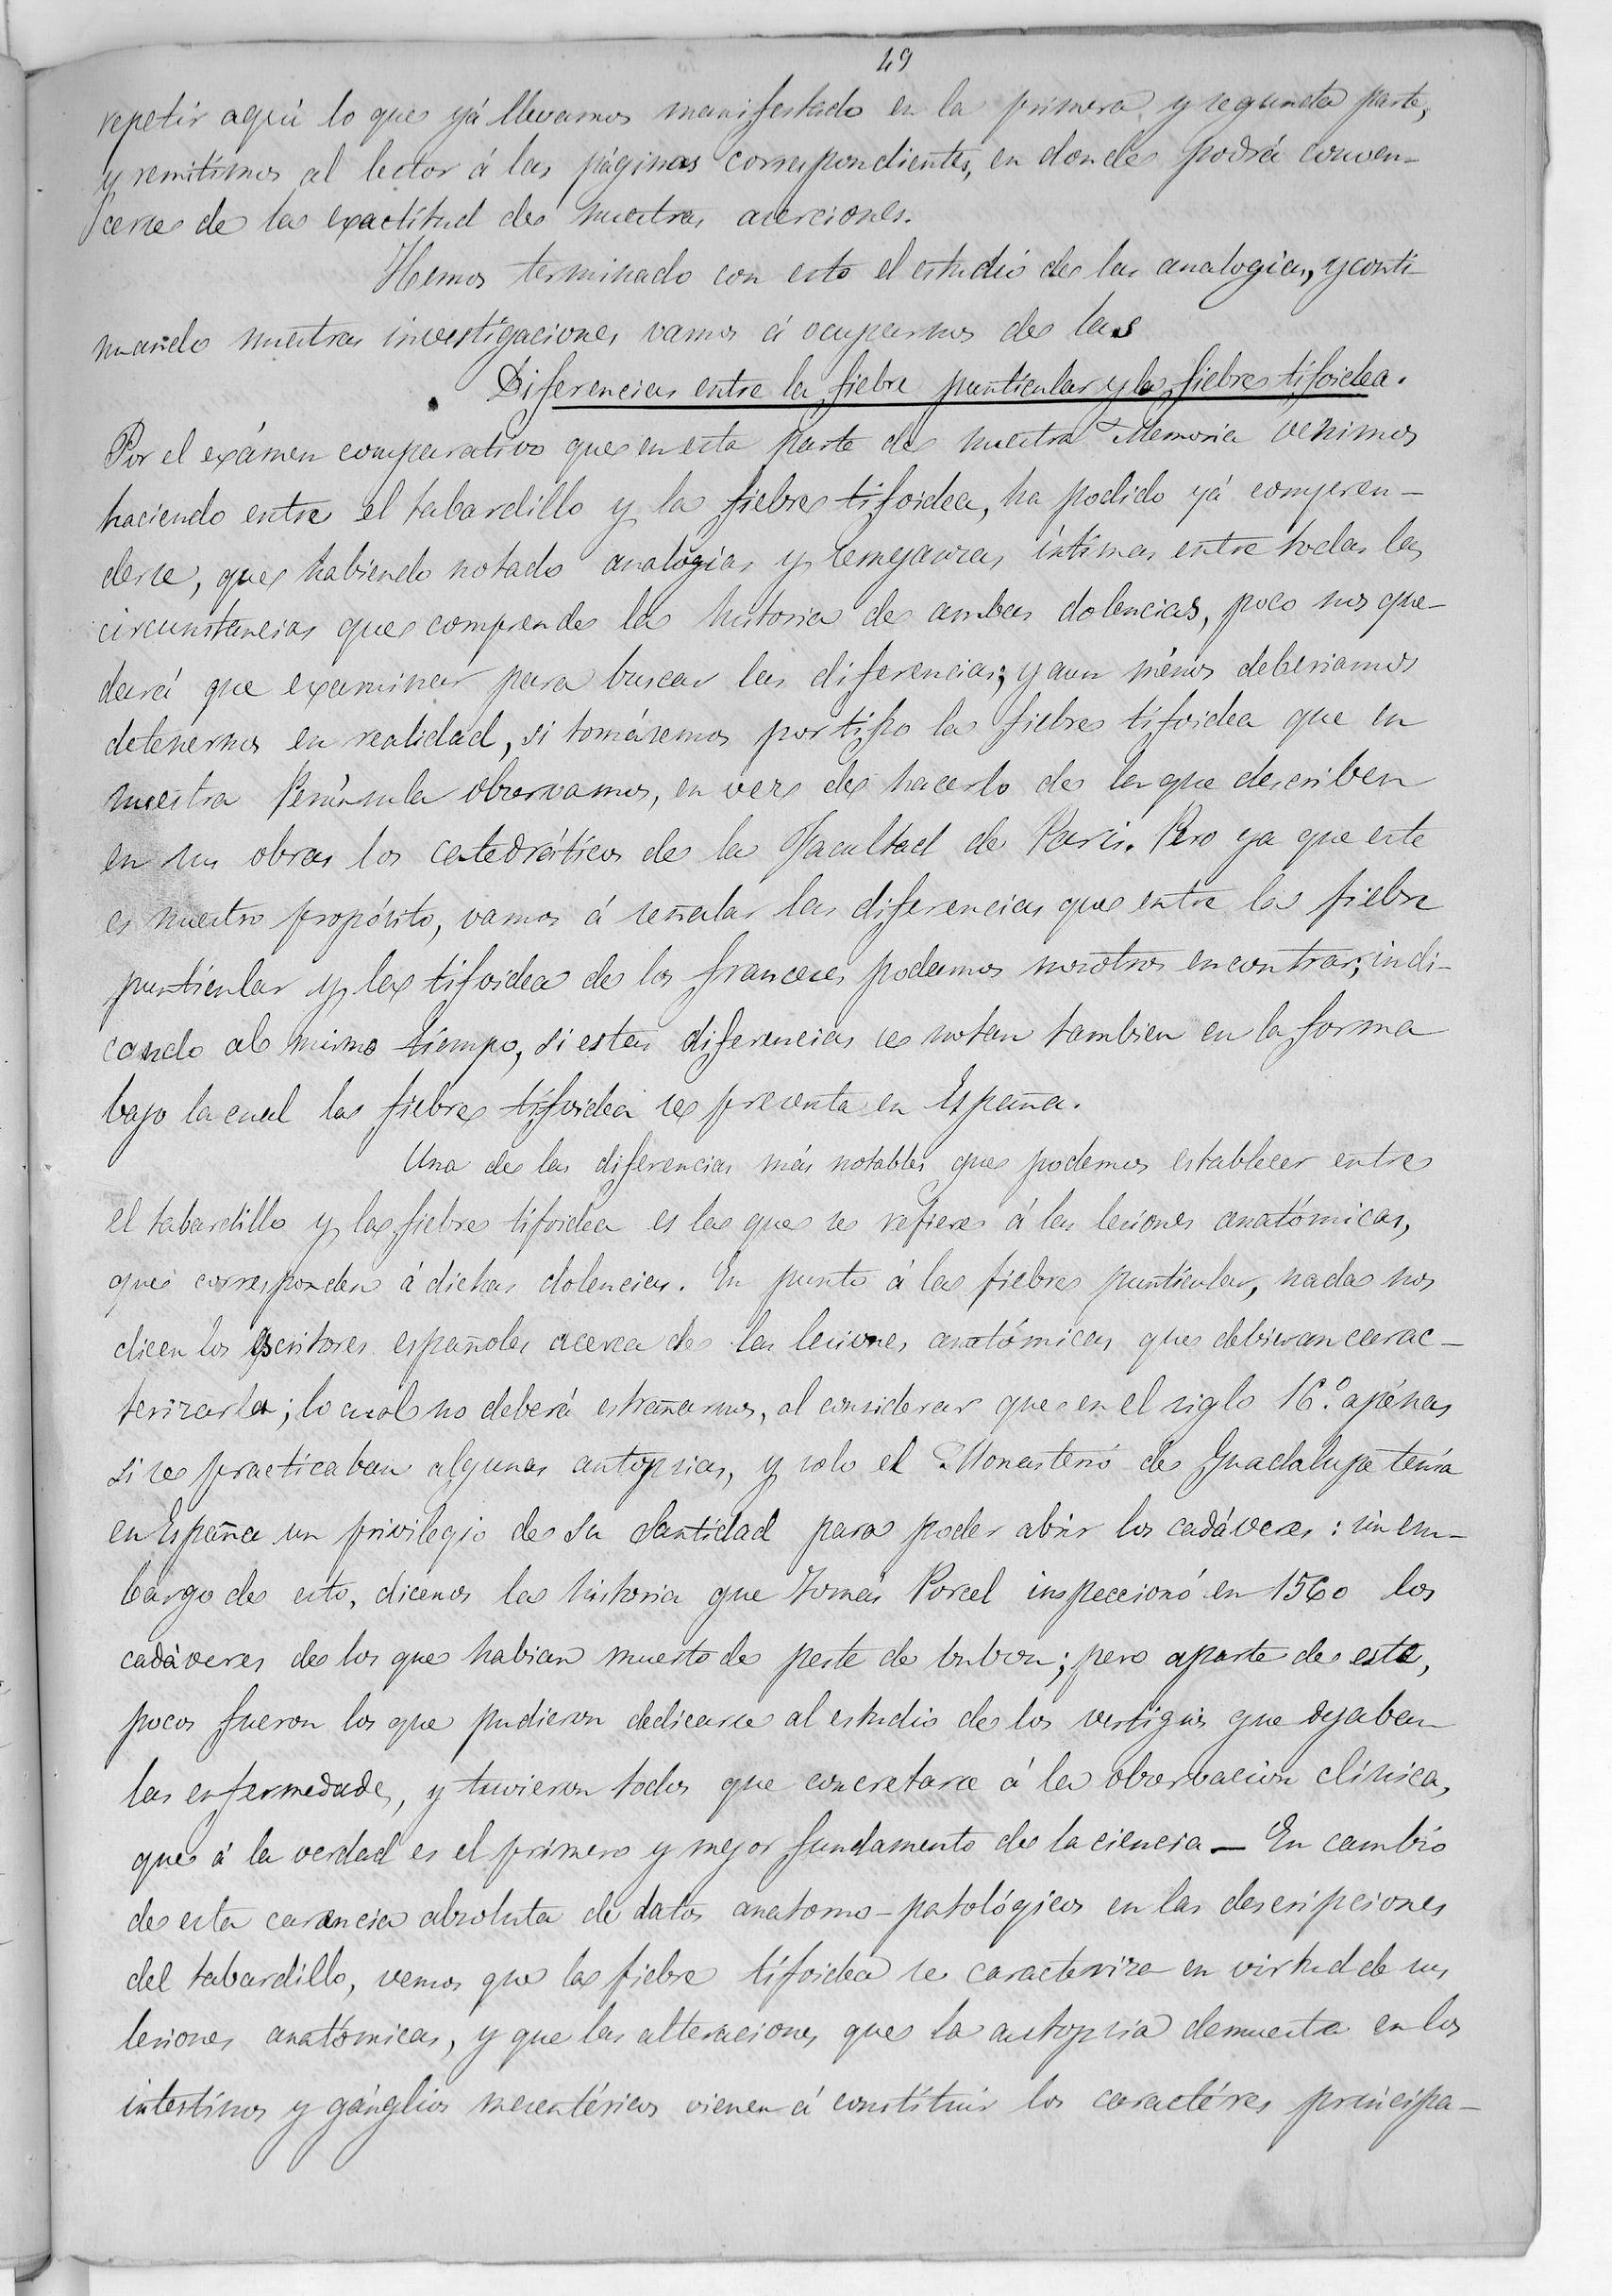 49
repetir aquí lo que yá llevamos manifestado en la primera y segunda parte,
y remitimos al lector á las páginas correspondientes, en donde podrá conven-
cerse de la exactitud de nuestras aserciones.
Hemos terminado con esto el estudio de las analogias, y conti-
nuando nuestras investigaciones vamos á ocuparnos de las
Diferencias entre la fiebre punticular y la fiebre tifoidea.
Por el exámen comparativo que en esta parte de nuestra Memoria venimos
haciendo entre el tabardillo y la fiebre tifoidea, ha podido yá compren-
derse, que habiendo notado analogias y semejanzas íntimas entre todas las
circunstancias que comprende la historia de ambas dolencias, poco nos que-
dará que examinar para buscar las diferencias; y aun ménos deberiamos
detenernos en realidad, si tomásemos por tipo la fiebre tifoidea que en
nuestra Península observamos, en vez de hacerlo de la que describen
en sus obras los catedráticos de la Facultad de Paris. Pero ya que este
es nuestro propósito, vamos á señalar las diferencias que entre la fiebre
punticular y la tifoidea de los franceses podamos nosotros encontrar; indi-
cando al mismo tiempo, si estas diferencias se notan tambien en la forma
bajo la cual la fiebre tifoidea se presenta en España.
Una de las diferencias más notables que podemos establecer entre
el tabardillo y la fiebre tifoidea es la que se refiere á las lesiones anatómicas,
que corresponden á dichas dolencias. En punto á la fiebre punticular, nada nos
dicen los escritores españoles acerca de las lesiones anatómicas que debieran carac-
terizarla; lo cual no deberá estrañarnos, al considerar que en el siglo 16.º apénas
si se practicaban algunas autopsias, y solo el Monasterio de Guadalupe tenía
en España un privilegio de Su Santidad para poder abrir los cadáveres: sin em-
bargo de esto, dícenos la historia que Tomás Porcel inspeccionó en 1560 los
cadáveres de los que habian muerto de peste de bubon; pero aparte de este,
pocos fueron los que pudieron dedicarse al estudio de los vestigios que dejaban
las enfermedades, y tuvieron todos que concretarse á la observacion clínica,
que á la verdad es el primero y mejor fundamento de la ciencia — En cambio
de esta carencia absoluta de datos anatomo-patológicos en las descripciones
del tabardillo, vemos que la fiebre tifoidea se caracteriza en virtud de sus
lesiones anatómicas, y que las alteraciones que la autopsia demuestra en los
intestinos y gánglios mesentéricos vienen á constituir los caractéres principa-